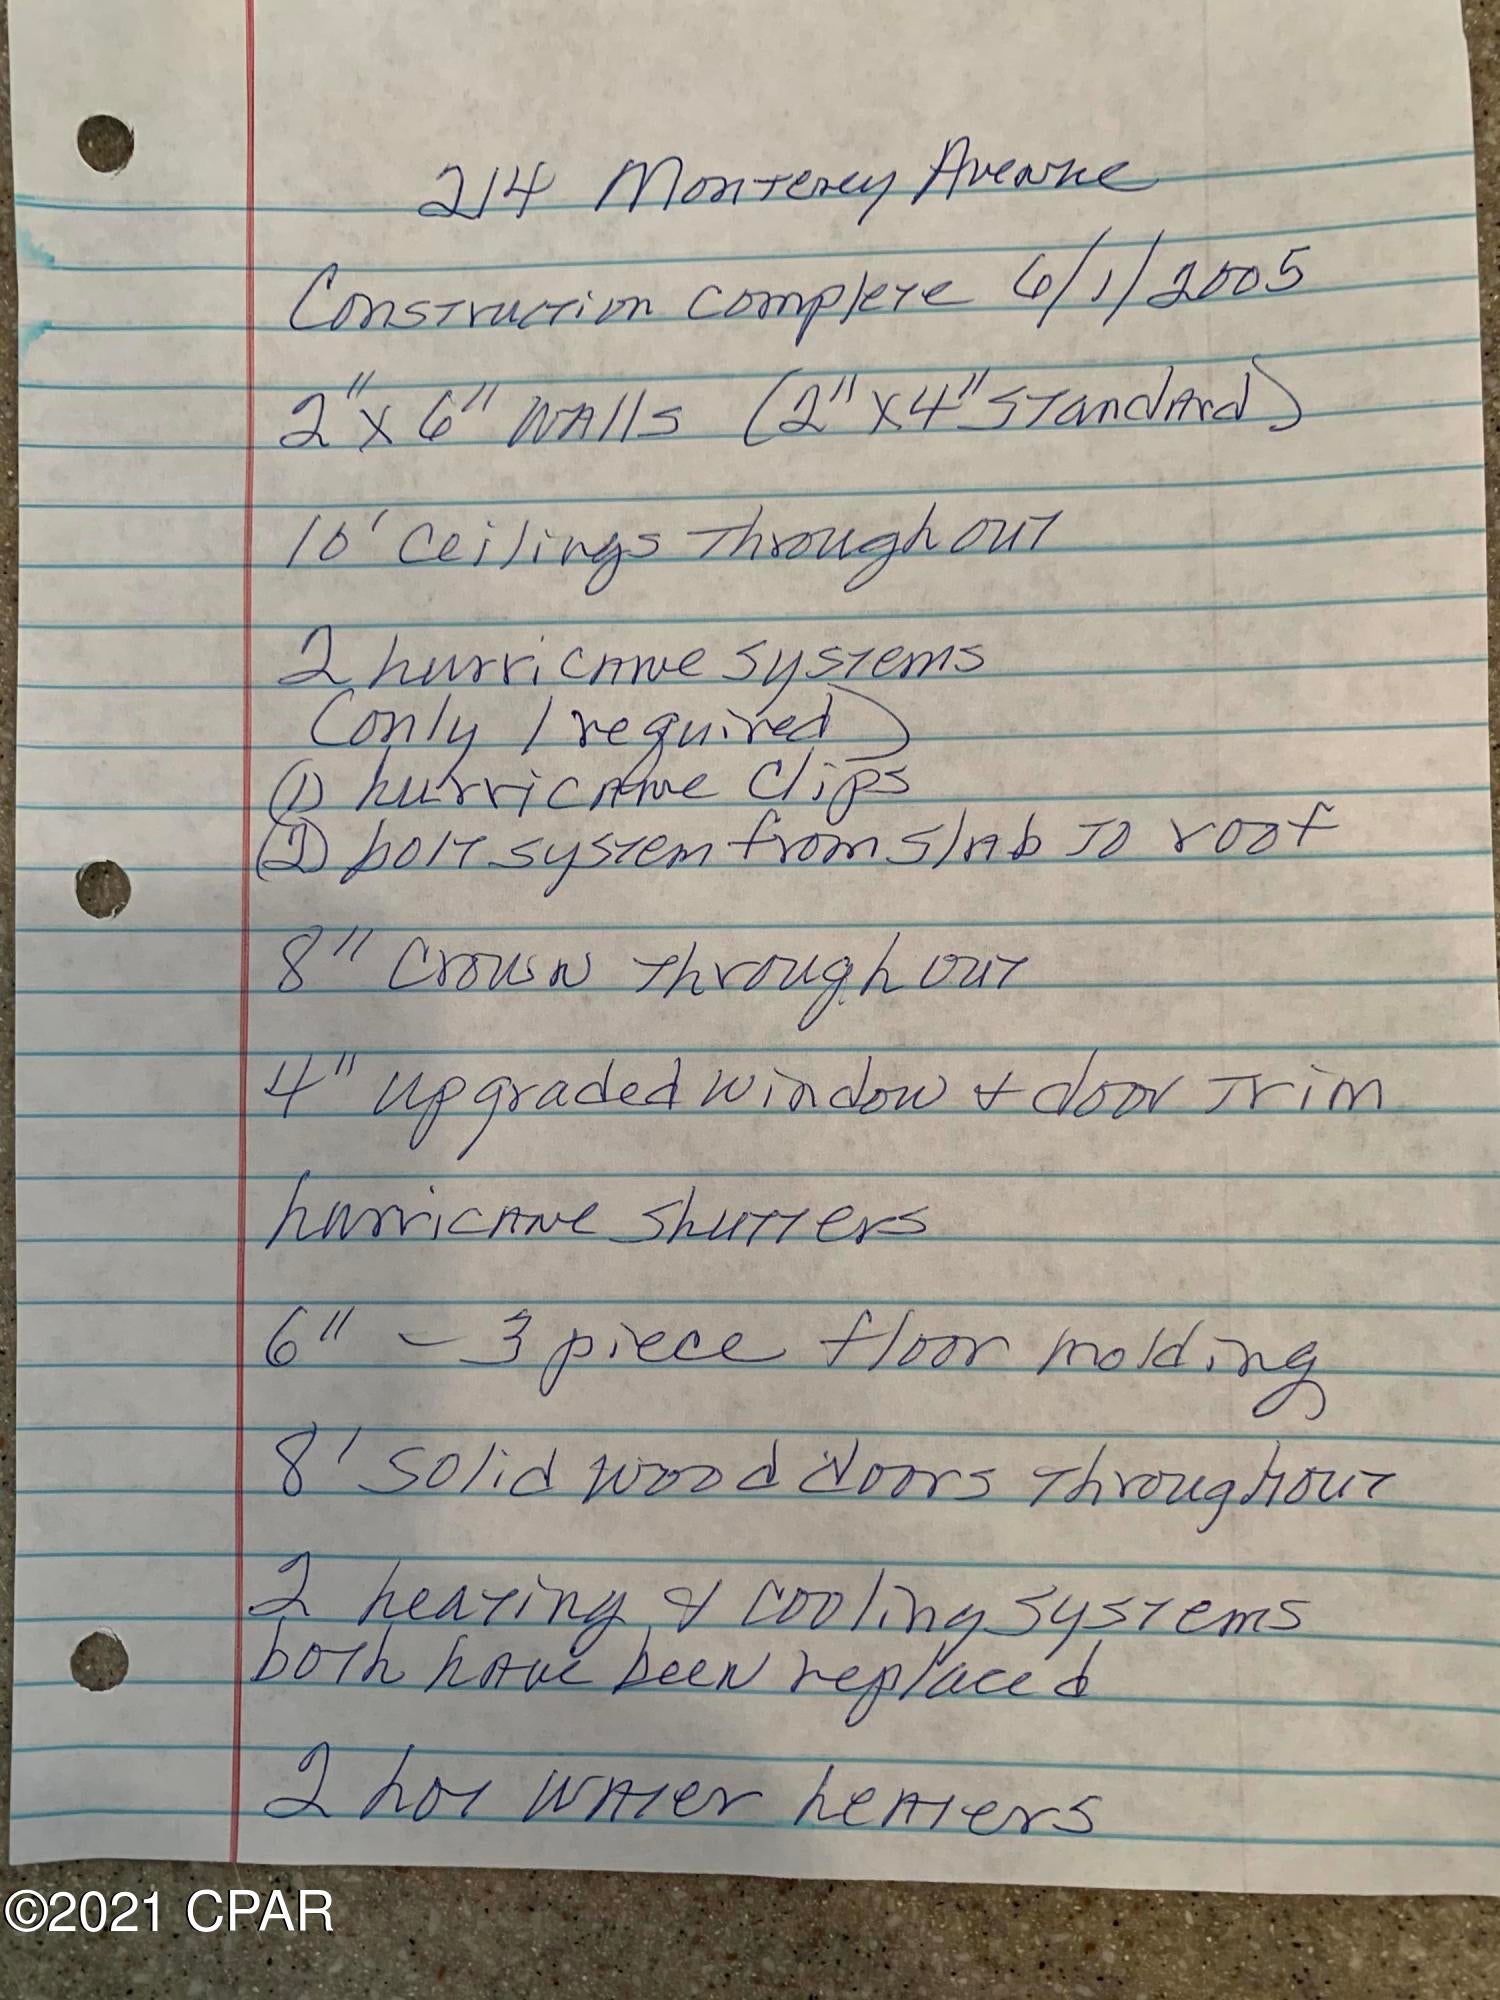 214 Monterey Avenue
Construction complete 6/1/2005
2" x 6" walls (2" x 4" standard)
10' ceilings throughout
2 hurricane systems
(only 1 required)
(1) hurricane clips
(2) bolt system from slab to roof
8" crown throughout
4" upgraded window & door trim
hurricane shutters
6" - 3 piece floor molding
8' solid wood doors throughout
2 heating & cooling systems
both have been replaced
2 hot water heaters
©2021 CPAR